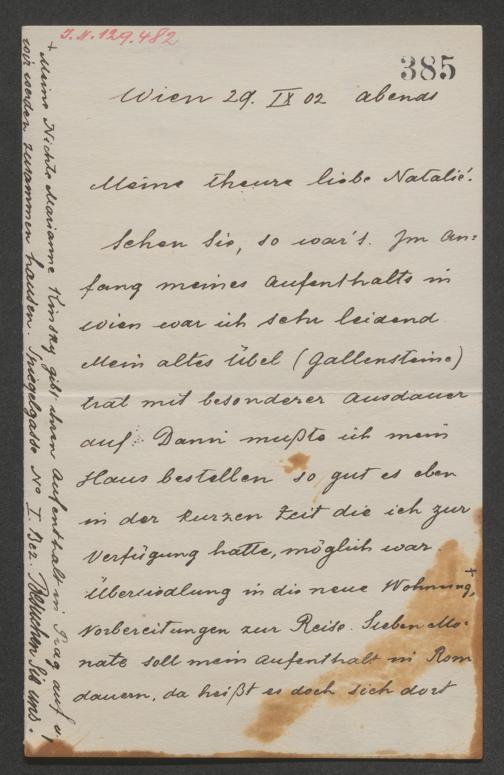 J.N. 129.482
385
Wien 29. IX 02 abends
Meine theure liebe Natalie!
Sehen Sie, so war's. Im An=
fang meines Aufenthalts in
Wien war ich sehr leidend.
Mein altes Übel (Gallensteine)
trat mit besonderer Ausdauer
auf. Dann mußte ich mein
Haus bestellen so gut es eben
in der kurzen Zeit die ich zur
Verfügung hatte, möglich war.
Übersiedlung in die neue Wohnung,+
Vorbereitungen zur Reise. Sieben Mo=
nate soll mein Aufenthalt in Rom
dauern, da heißt es doch sich dort
+ Meine Nichte Marianne Kinsky gibt ihren Aufenthalt in Prag auf u.
wir werden zusammen hausen. Spiegelgasse No 1 I Bez. Besuchen Sie uns.